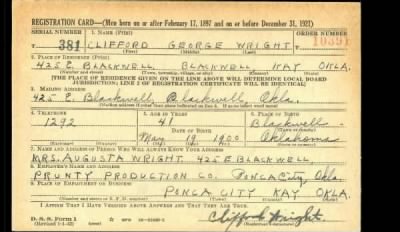 REGISTRATION CARD—(Men born on or after February 17, 1897 and on or before December 31, 1921)
SERIAL NUMBER 1. NAME (Print) ORDER NUMBER
T 381 CLIFFORD GEORGE WRIGHT 10391
(First) (Middle) (Last)
2. PLACE OF RESIDENCE (Print)
425 E BLACKWELL BLACKWELL KAY OKLA.
(Number and street) (Town, township, village, or city) (County) (State)
[THE PLACE OF RESIDENCE GIVEN ON THE LINE ABOVE WILL DETERMINE LOCAL BOARD
JURISDICTION; LINE 2 OF REGISTRATION CERTIFICATE WILL BE IDENTICAL]
3. MAILING ADDRESS
425 E. Blackwell, Blackwell Okla.
4. TELEPHONE 5. AGE IN YEARS 6. PLACE OF BIRTH
1292 41 Blackwell
DATE OF BIRTH
May 19 1900 Oklahoma
(Mo.) (Day) (Yr.) (State or country)
7. NAME AND ADDRESS OF PERSON WHO WILL ALWAYS KNOW YOUR ADDRESS
MRS. AUGUSTA WRIGHT 425 E BLACKWELL
8. EMPLOYER'S NAME AND ADDRESS
PRUNTY PRODUCTION CO. PONCA CITY, Okla.
9. PLACE OF EMPLOYMENT OR BUSINESS
PONCA CITY KAY OKLA.
(Number and street or R. F. D. number) (Town) (County) (State)
I AFFIRM THAT I HAVE VERIFIED ABOVE ANSWERS AND THAT THEY ARE TRUE.
D. S. S. Form 1
(Revised 1-1-42) (over) Clifford Wright.